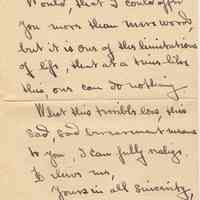 Would, that I could offer
you more than mere words,
but it is one of the limitations
of life, that at a time like
this, one can do nothing.
What this terrible loss, this
sad, sad bereavement means
to you, I can fully realize.
Believe me,
Yours in all sincerity,